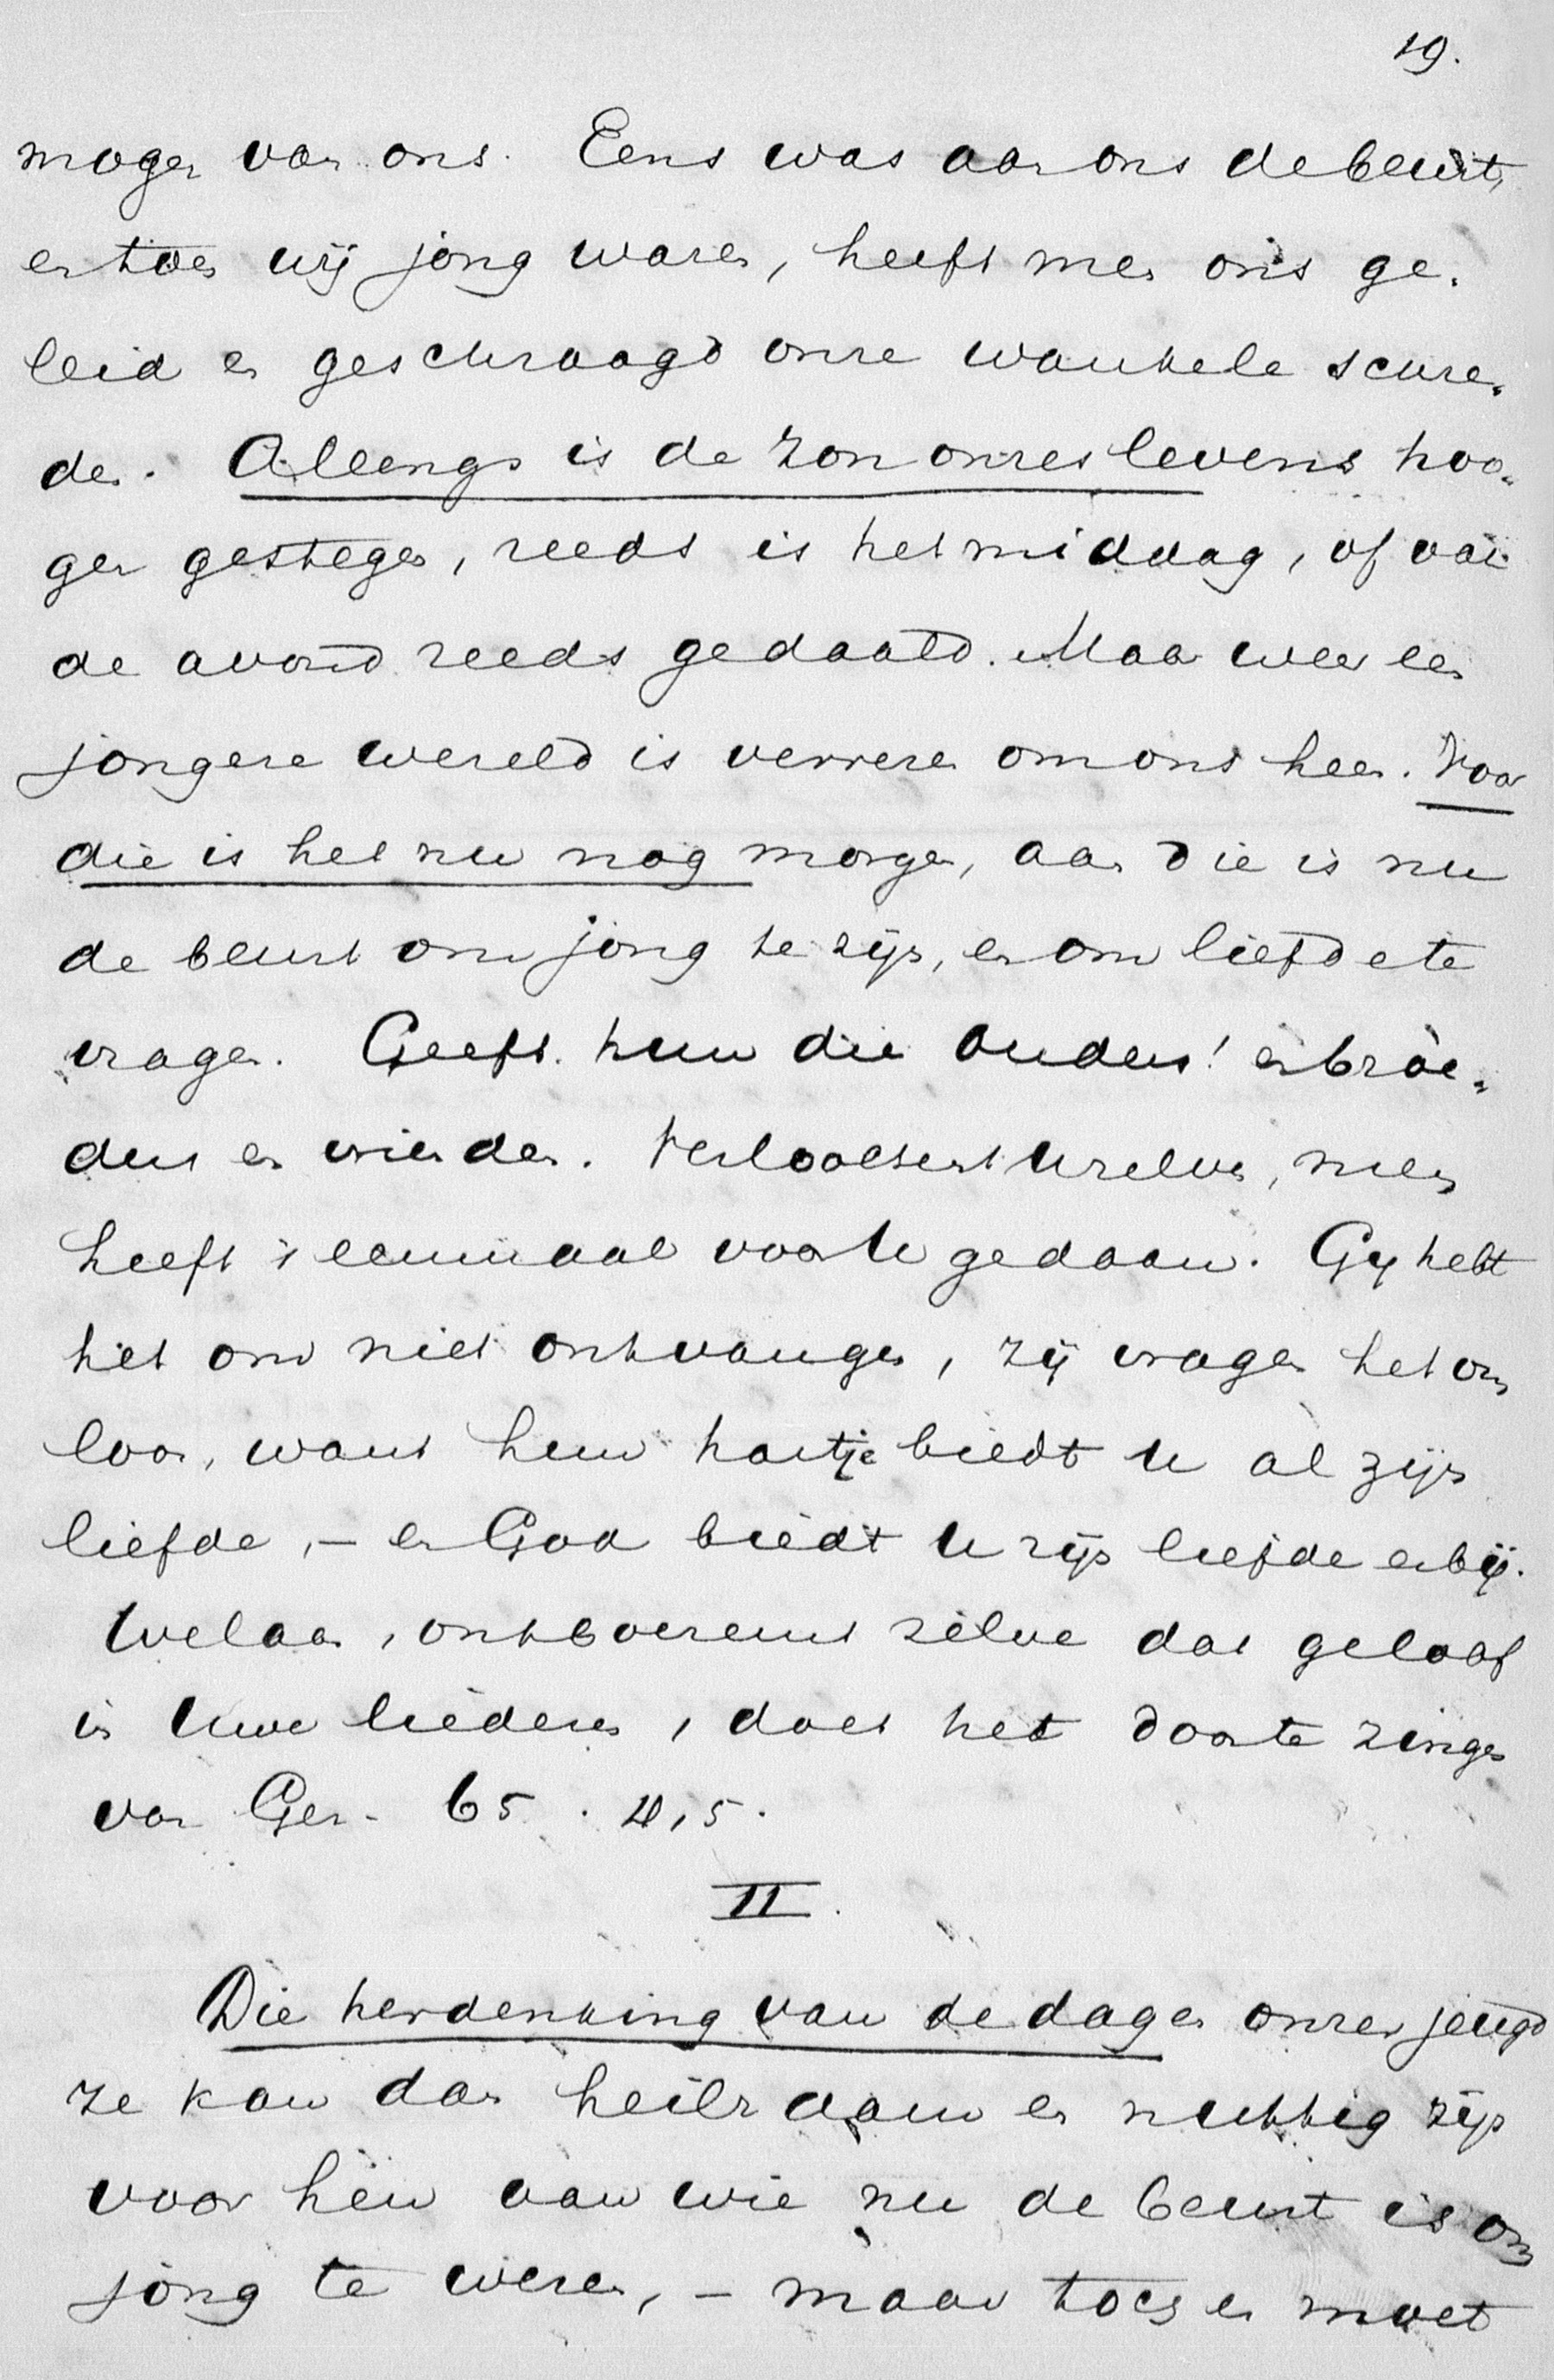 19.
mogen van ons. Eens was aan ons de beurt,
en toen wij jong waren, heeft men ons ge-
leid en geschraagd onze wankele schre-
den. Allengs is de zon onzes levens hoo-
ger gestegen, reeds is het middag, of van
de avond reeds gedaald. Maar weer een
jongere wereld is verrezen om ons heen. Voor
die is het nu nog morgen, aan die is nu
de beurt om jong te zijn, en om liefde te
vragen. Geeft hun die ouders! en broe-
ders en vrienden. Verloochent U zelven, men
heeft 't eenmaal voor U gedaan. Gij hebt
het om niet ontvangen, zij vragen het om
loon, want hun hartje biedt U al zijn
liefde, – en God biedt U zijn liefde erbij.
Welaan, ontboezemt zelve dat geloof
in Uwe liederen, doet het door te zingen
van Gez. 65. 4, 5.
II.
Die herdenking van de dagen onzer jeugd
ze kan dan heilzaam en nuttig zijn
voor hen aan wie nu de beurt is om
jong te wezen, – maar toch er moet